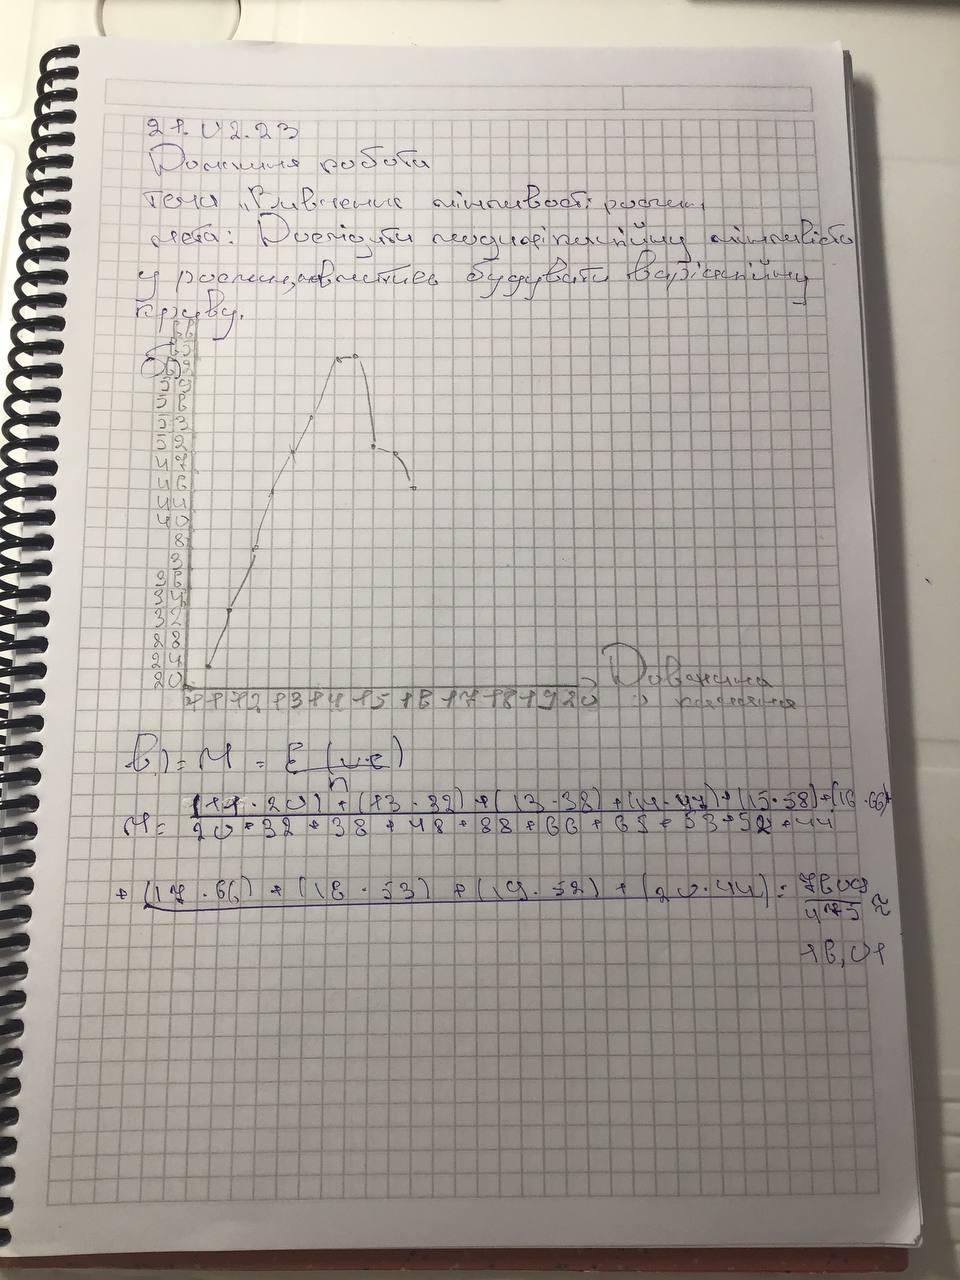 21.02.23
Домашня робота
Тема „Вивчення мінливості рослин„
Мета: Дослідити модифікаційну мінливість
у рослин, навчитись будувати варіаційну
криву.
б)
66
65
62
59
56
53
52
47
46
44
40
8
3
36
34
32
28
24
20
11 12 13 14 15 16 17 18 19 20
Довжина
в) = M = E (v·c)
n
(11·20) + (13·32) + (13·38) + (14·47) + (15·58) + (16·66)+
M=
20+32+38+48+88+66+65+53+52+44
+ (17·66) + (18·53) + (19·52) + (20·44) = 7609
475 ≈
16,01